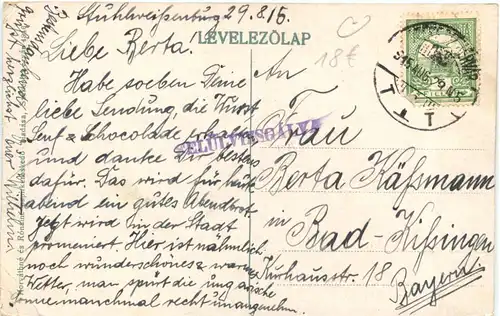 Stuhlweißenburg 29.8.15.
LEVELEZŐLAP
18€
Liebe Berta!
Habe soeben Deine
liebe Sendung, die Wurst
Senf & Schocolade erhalten
und danke Dir bestens
dafür. Das wird für heute
abend ein gutes Abendbrot.
Jetzt wird in der Stadt
promeniert. Hier ist nähmlich
noch wunderschönes & warmes
Wetter, man spürt die ungarische
Sonne manchmal recht unangenehm.
FELÜLVIZSGÁLVA
An
Frau
Berta Käßmann
in Bad-Kissingen
Kurhausstr. 18
Bayern.
herzlichst Euer Wilhelm